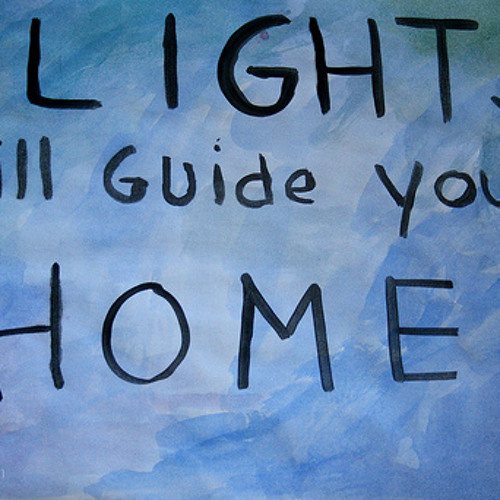 LIGHT
ill Guide you
HOME